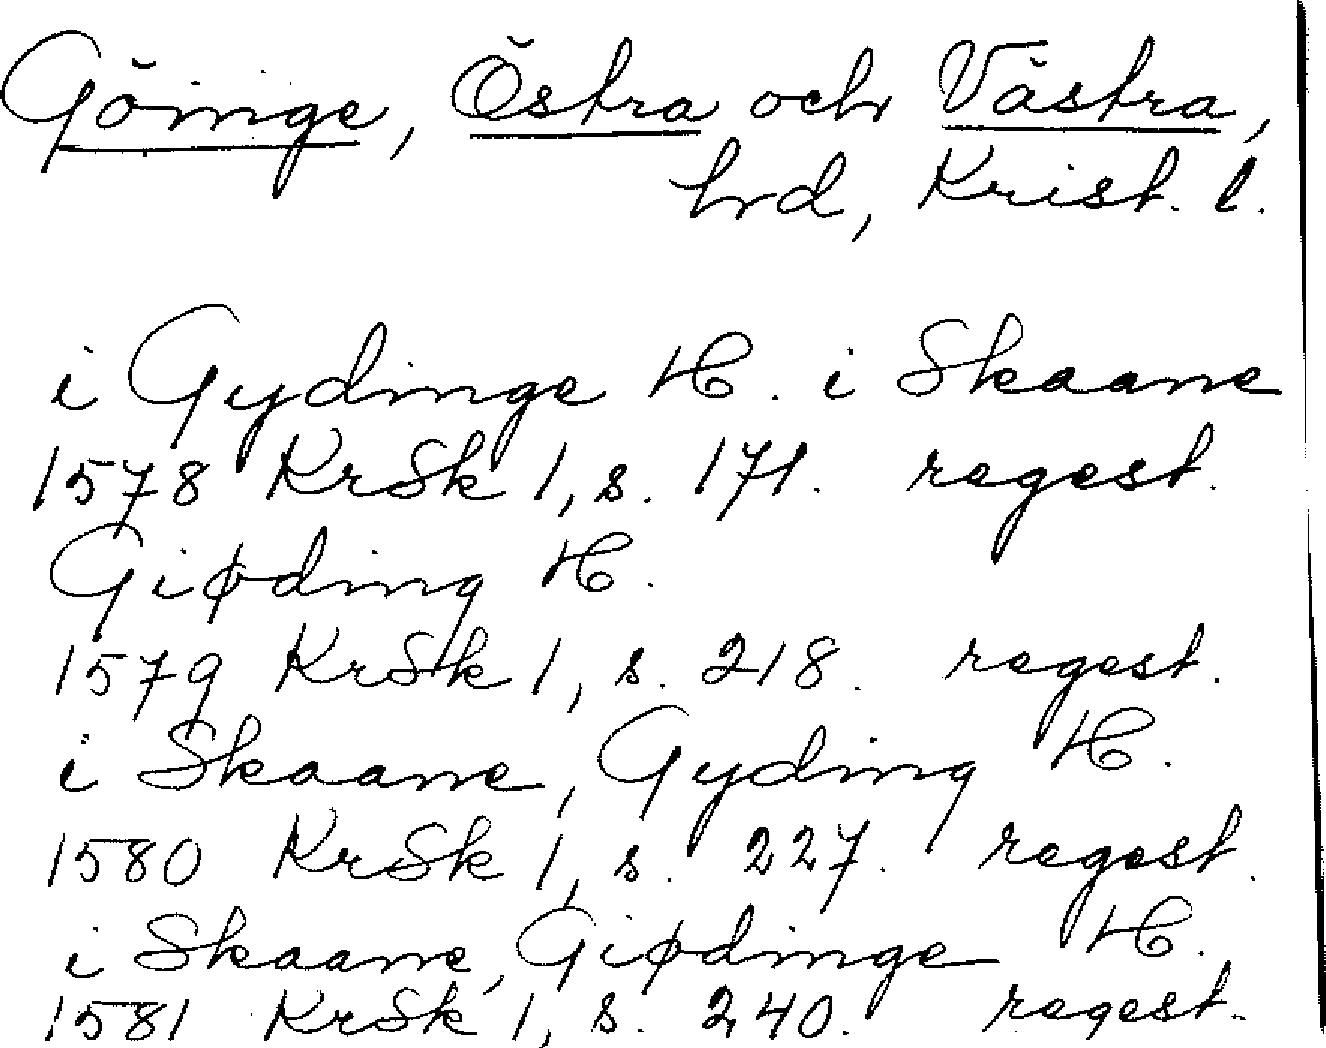 Göinge, Östra och Västra,
hrd, Krist. l.
i Gydinge H. i Skaane
1578 KrSk 1, s. 171. regest.
Giøding H.
1579 KrSk 1, s. 218. regest.
i Skaane, Gyding H.
1580 KrSk 1, s. 227. regest.
i Skaane, Giødinge H.
1581 KrSk 1, s. 240. regest.